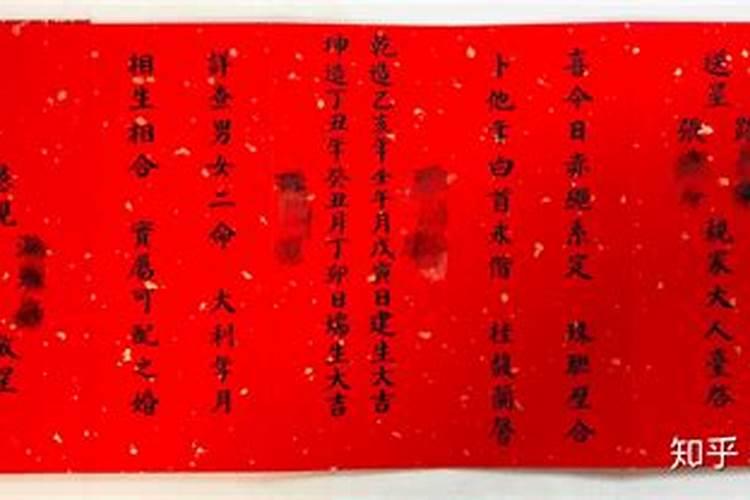 送呈
張
親家大人臺啓
喜今日赤繩系定 珠聯璧合
卜他年白首永偕 桂馥蘭馨
乾造乙亥年壬午月戊寅日建生大吉
坤造丁丑年癸丑月丁卯日端生大吉
詳查男女二命 大利年月
相生相合 實屬可配之婚
敬呈
知乎